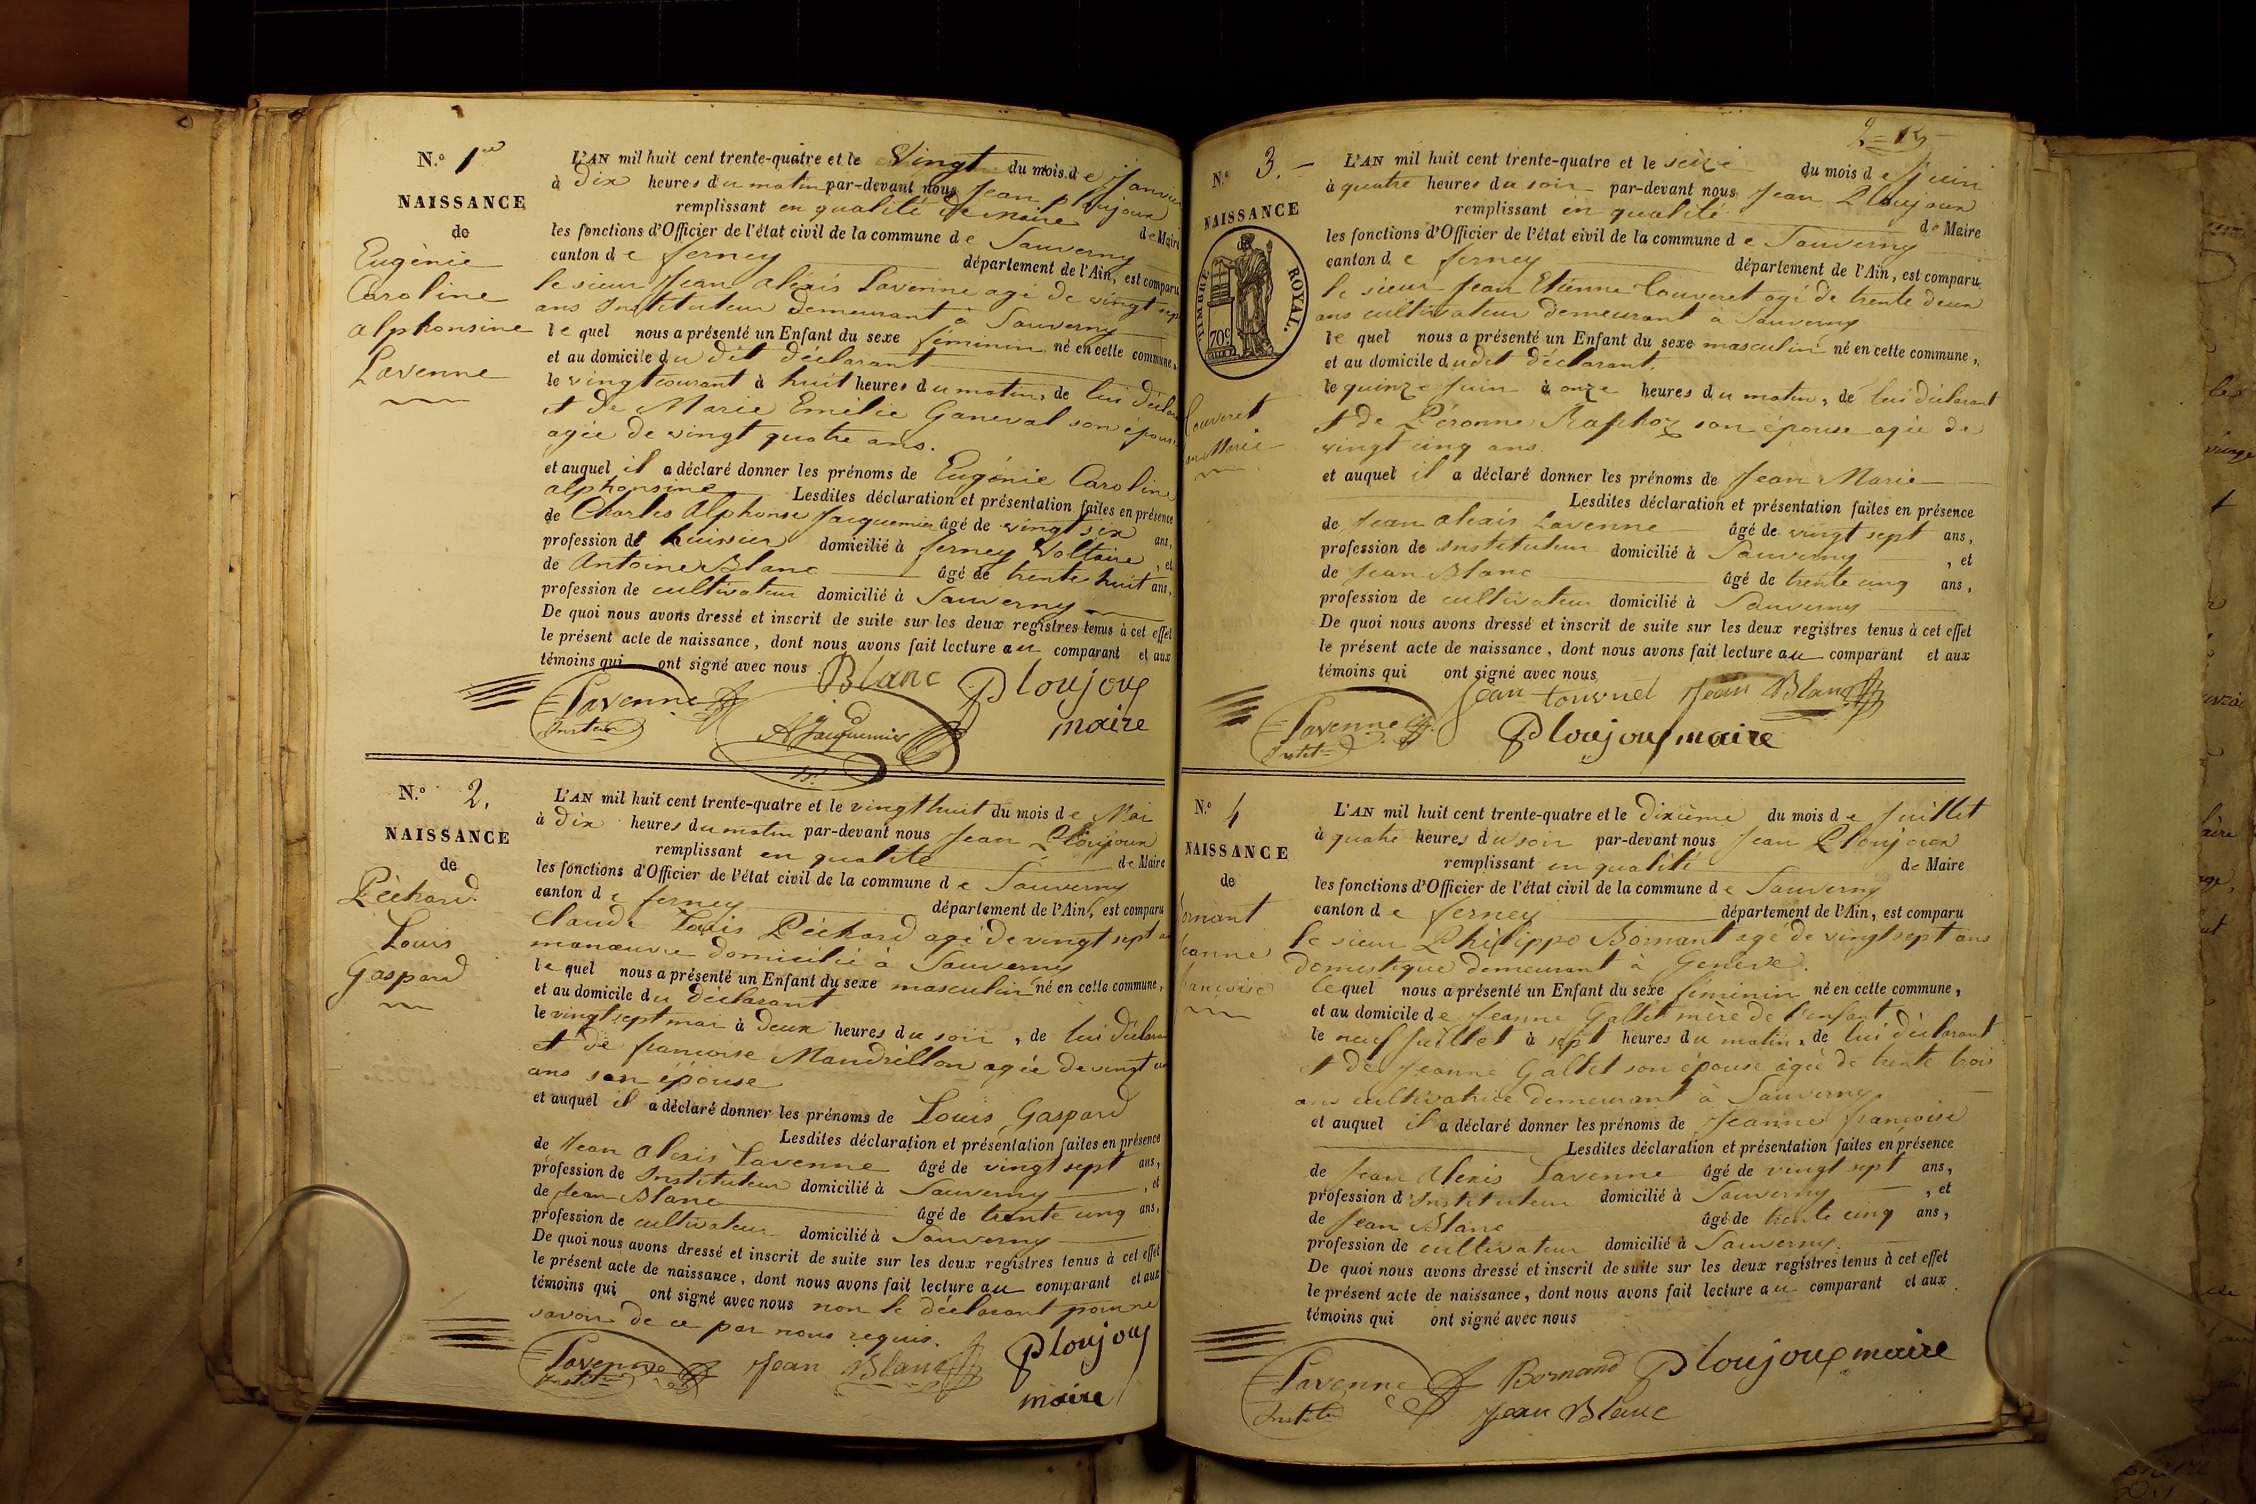 N.° 1er
NAISSANCE
de
Eugènie
Caroline
alphonsine
Lavenne
L'AN mil huit cent trente-quatre et le Vingt du mois de Janvier
à Dix heures du matin par-devant nous Jean Ploujoux
remplissant en qualité de maire de Maire
les fonctions d'Officier de l'état civil de la commune de Sauverny
canton de ferney département de l'Ain, est comparu
le sieur Jean alexis Lavenne agé de vingt sept
ans Instituteur demeurant à Sauverny
le quel nous a présenté un Enfant du sexe féminin né en cette commune,
et au domicile du dit déclarant
le vingt courant à huit heures du matin, de lui déclarant
et de Marie Emélie Ganeval son épouse
agée de vingt quatre ans.
et auquel il a déclaré donner les prénoms de Eugénie Caroline
alphonsine Lesdites déclaration et présentation faites en présence
de Charles Alphonse Jacquemier âgé de vingt six ans,
profession de huissier domicilié à ferney Voltaire, et
de Antoine Blanc âgé de trente huit ans,
profession de cultivateur domicilié à Sauverny
De quoi nous avons dressé et inscrit de suite sur les deux registres tenus à cet effet
le présent acte de naissance, dont nous avons fait lecture au comparant et aux
témoins qui ont signé avec nous
Blanc Ploujoux
maire
Lavenne
Instit
A Jacquemier
N.° 2.
NAISSANCE
de
Pèchard
Louis
Gaspard
L'AN mil huit cent trente-quatre et le vingt huit du mois de Mai
à Dix heures du matin par-devant nous Jean Ploujoux
remplissant en qualité de Maire
les fonctions d'Officier de l'état civil de la commune de Sauverny
canton de ferney département de l'Ain, est comparu
Claude Louis Pèchard agé de vingt sept ans
manœuvre domicilié à Sauverny
le quel nous a présenté un Enfant du sexe masculin né en cette commune,
et au domicile du déclarant
le vingt sept mai à deux heures du soir, de lui déclarant
et de francoise Mandrillon agée de vingt
ans son épouse
et auquel il a déclaré donner les prénoms de Louis Gaspard
Lesdites déclaration et présentation faites en présence
de Jean alexis Lavenne âgé de vingt sept ans,
profession de Instituteur domicilié à Sauverny, et
de Jean Blanc âgé de trente cinq ans,
profession de cultivateur domicilié à Sauverny
De quoi nous avons dressé et inscrit de suite sur les deux registres tenus à cet effet
le présent acte de naissance, dont nous avons fait lecture au comparant et aux
témoins qui ont signé avec nous non le déclarant pour ne
savoir de ce par nous requis.
Lavenne Jean Blanc Ploujoux
Instit maire
2 = 
N.° 3.
NAISSANCE
TIMBRE ROYAL.
70c
Couveret
Jean Marie
L'AN mil huit cent trente-quatre et le seize du mois de Juin
à quatre heures du soir par-devant nous Jean Ploujoux
remplissant en qualité de Maire
les fonctions d'Officier de l'état civil de la commune de Sauverny
canton de ferney département de l'Ain, est comparu
le sieur Jean Etienne Couveret agé de trente deux
ans cultivateur demeurant à Sauverny
le quel nous a présenté un Enfant du sexe masculin né en cette commune,
et au domicile dudit déclarant.
le quinze Juin à onze heures du matin, de lui déclarant
et de Péronne Raphoz son épouse agée de
vingt cinq ans.
et auquel il a déclaré donner les prénoms de Jean Marie
Lesdites déclaration et présentation faites en présence
de Jean alexis Lavenne âgé de vingt sept ans,
profession de Instituteur domicilié à Sauverny, et
de Jean Blanc âgé de trente cinq ans,
profession de cultivateur domicilié à Sauverny
De quoi nous avons dressé et inscrit de suite sur les deux registres tenus à cet effet
le présent acte de naissance, dont nous avons fait lecture au comparant et aux
témoins qui ont signé avec nous
Jean Jean Blanc
Lavenne
Instit
Ploujoux maire
N.° 4
NAISSANCE
de
ornant
eanne
rançoise
L'AN mil huit cent trente-quatre et le dixième du mois de Juillet
à quatre heures du soir par-devant nous Jean Ploujoux
remplissant en qualité de Maire
les fonctions d'Officier de l'état civil de la commune de Sauverny
canton de ferney département de l'Ain, est comparu
le sieur Philippe Bornant agé de vingt sept ans
domestique demeurant à Genève.
lequel nous a présenté un Enfant du sexe féminin né en cette commune,
et au domicile de Jeanne Galtet mère de l'enfant
le neuf Juillet à sept heures du matin, de lui déclarant
et de Jeanne Galtet son épouse agée de trente trois
ans cultivatrice demeurant à Sauverny
et auquel il a déclaré donner les prénoms de Jeanne françoise
Lesdites déclaration et présentation faites en présence
de Jean Alexis Lavenne âgé de vingt sept ans,
profession d'Instituteur domicilié à Sauverny, et
de Jean Blanc âgé de trente cinq ans,
profession de cultivateur domicilié à Sauverny.
De quoi nous avons dressé et inscrit de suite sur les deux registres tenus à cet effet
le présent acte de naissance, dont nous avons fait lecture au comparant et aux
témoins qui ont signé avec nous
Lavenne Bornand Ploujoux maire
Instit Jean Blanc